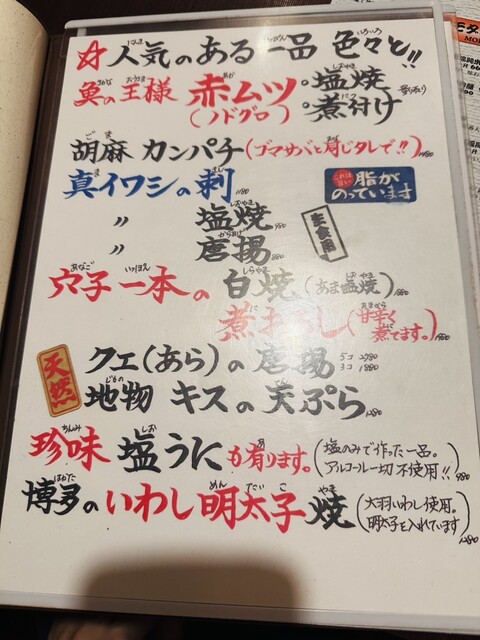 ☆人気のある一品 色々と!!
魚の王様 赤ムツ(ノドグロ)
・塩焼
・煮付け
胡麻 カンパチ(ゴマサバと同じタレで!!)
真イワシの刺
これは旨い! 脂がのっています
〃 塩焼
〃 唐揚
生食用
穴子一本の白焼(あま塩焼)
煮おろし(甘辛く煮てます。)
天然
クエ(あら)の唐揚 5コ 2780
3コ 1880
地物 キスの天ぷら 1280
珍味 塩うにも有ります。(塩のみで作った一品。アルコール一切不使用!!) 980
博多のいわし明太子焼(大羽いわし使用。明太子を入れています) 1280